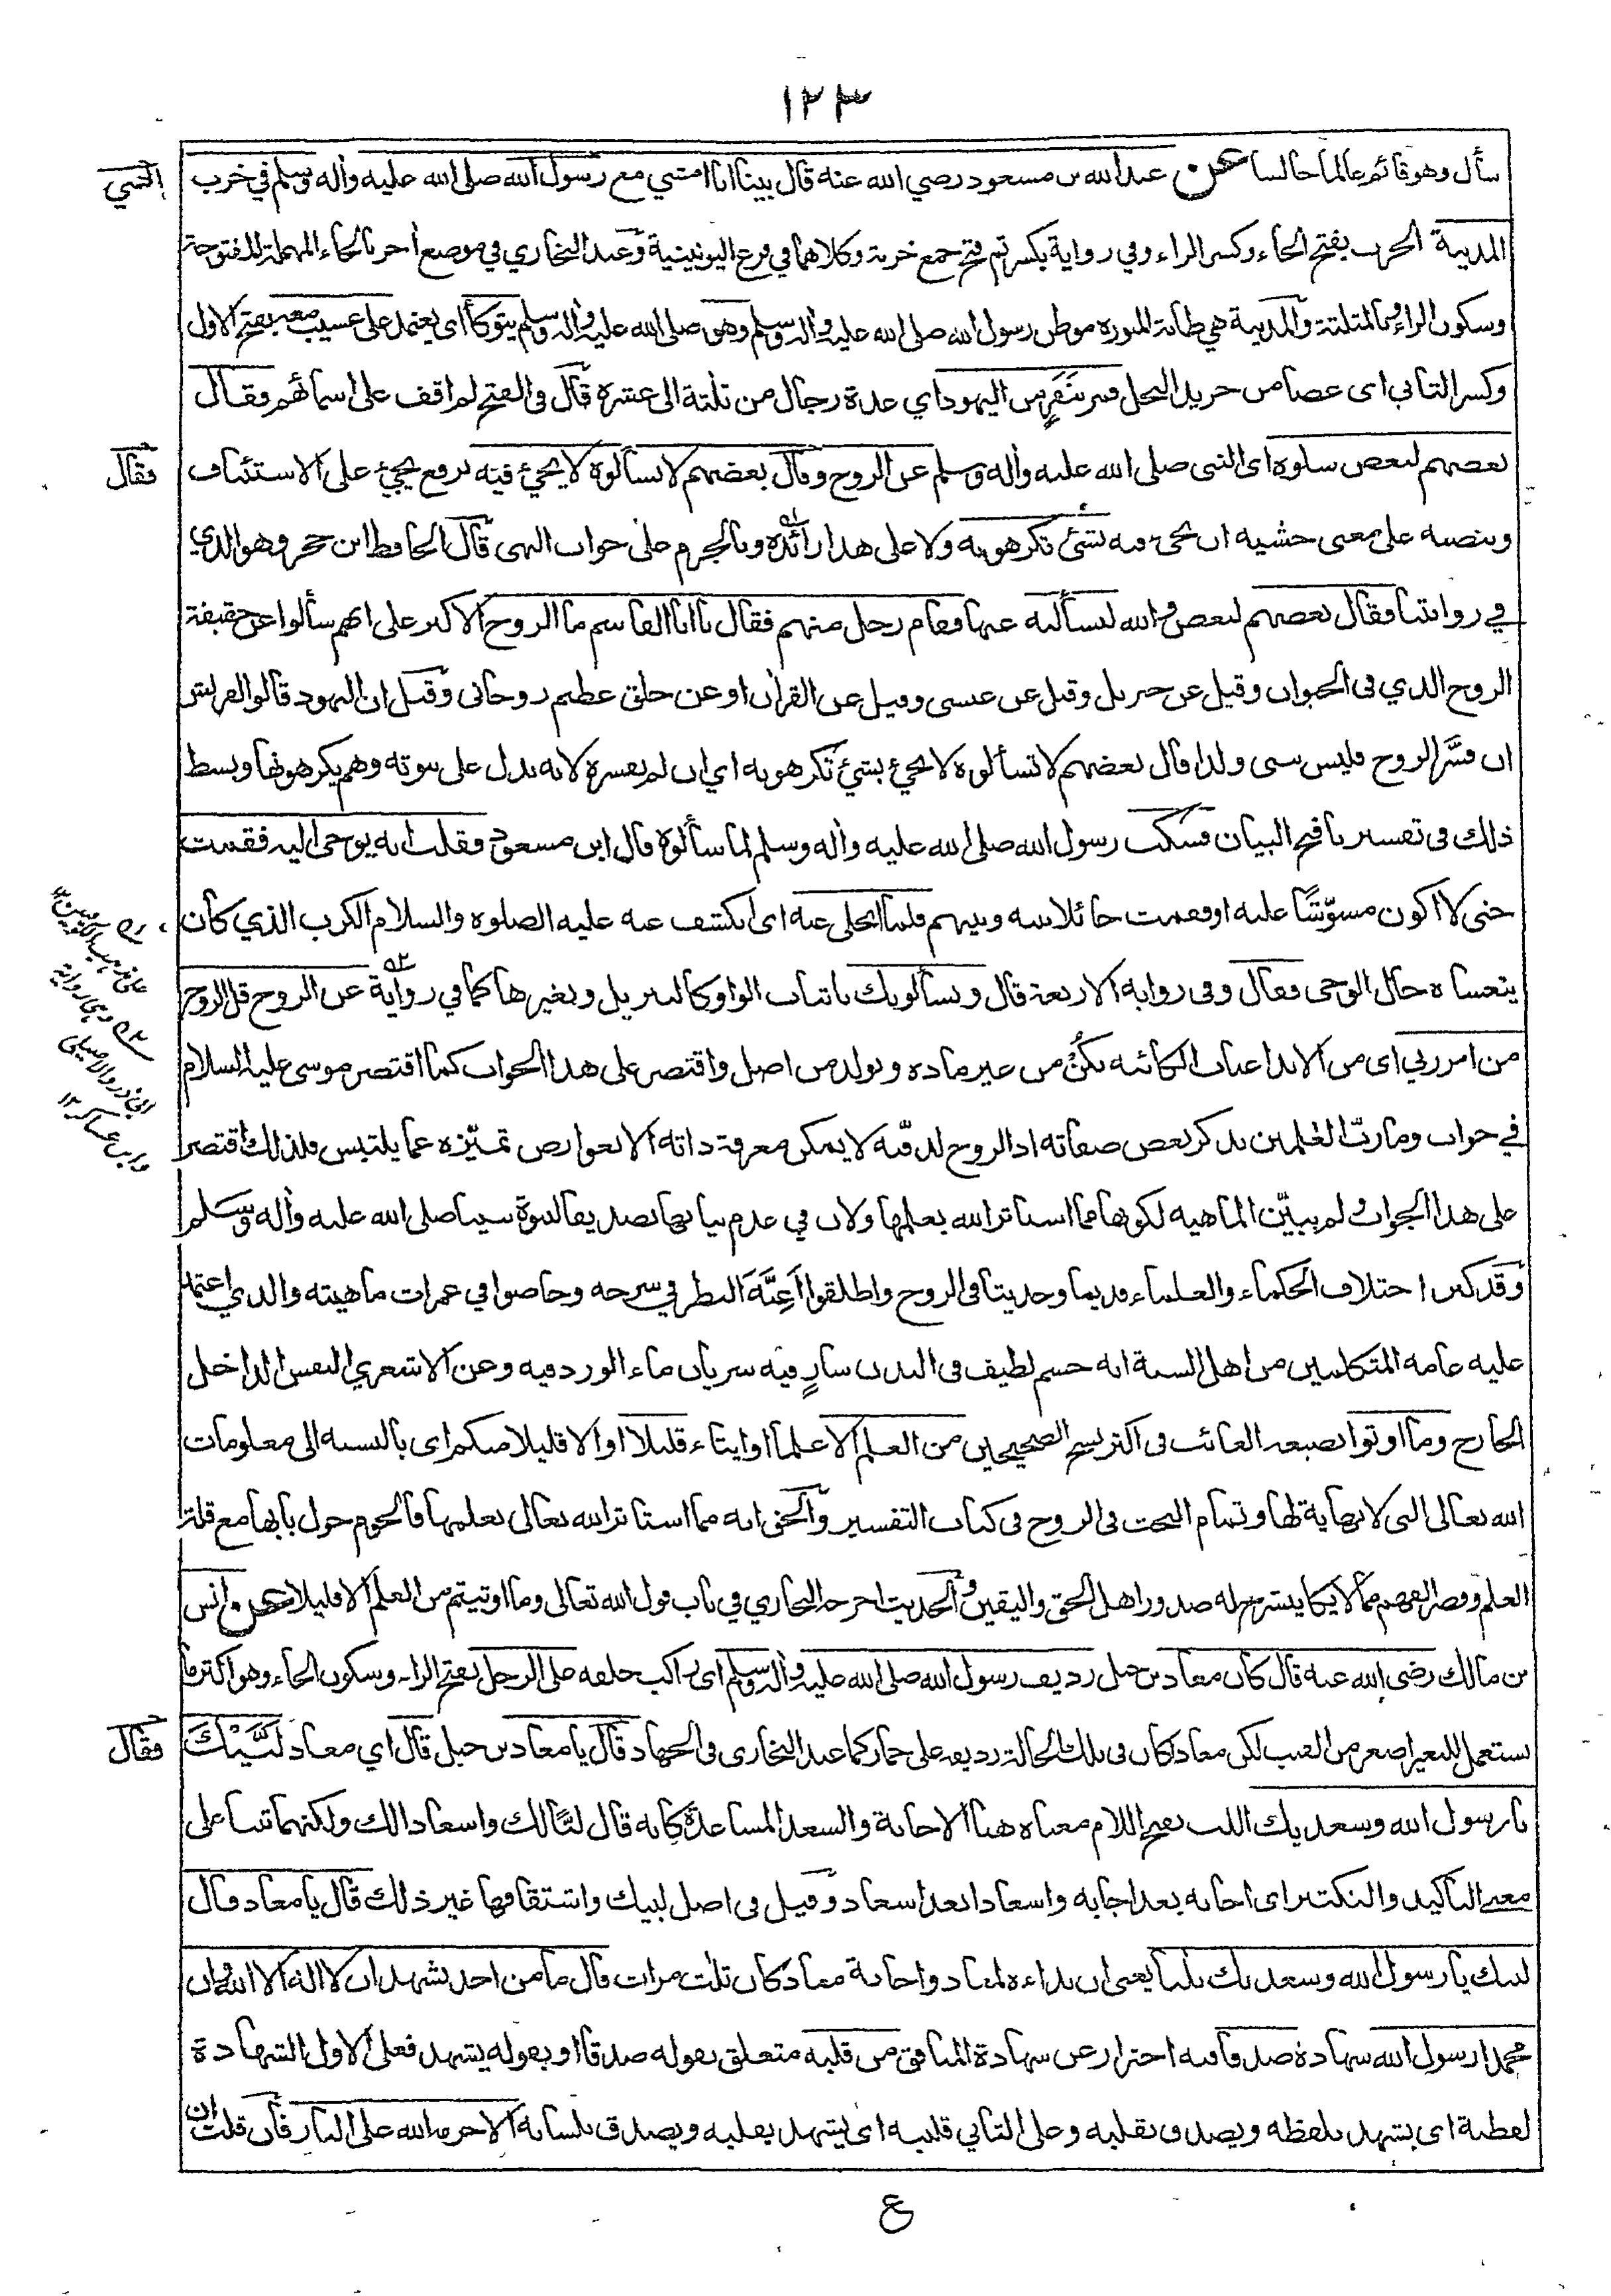 ١٢٣
سأل وهو قائم عالما جالسا عن عبد الله بن مسعود رضي الله عنه قال بينا انا امشي مع رسول الله صلى الله عليه وأله وسلم في خرب
النبي
المدينة الخرب بفتح الخاء وكسر الراء وفي رواية بكسر ثم فتح جمع خربة وكلاهما في فرع اليونينية وعند البخاري في موضع أخر بالحاء المهملة المفتوحة
وسكون الراء وبالمثلثة والمدينة هي طابة المنورة موطن رسول الله صلى الله عليه وأله وسلم وهو صلى الله عليه وأله وسلم يتوكأ اى يعتمد على عسيب معه بفتح الاول
وكسر الثاني اى عصا من جريد النخل فمر بنَفَرٍ من اليهود اي عدة رجال من ثلثة الى عشرة قال في الفتح لم اقف على اسمائهم فقال
بعضهم لبعض سلوه اى النبي صلى الله عليه وأله وسلم عن الروح وقال بعضهم لا تسألوه لا يجئ فيه برفع يجئ على الاستئناف
فقال
وبنصبه على معنى خشية ان يجئ فيه بشئ تكرهونه ولا على هذا زائدة وبالجزم على جواب النهى قال الحافظ ابن حجر وهو الذي
في روايتنا فقال بعضهم لبعض والله لنسألنه عنها فقام رجل منهم فقال يا ابا القاسم ما الروح الاكثر على انهم سألوا عن حقيقة
الروح الذي في الحيوان وقيل عن جبريل وقيل عن عيسى وقيل عن القرأن او عن خلق عظيم روحانى وقيل ان اليهود قالوا لقريش
ان فسَّر الروح فليس بنبى ولذا قال بعضهم لا تسألوه لا يجئ بشئ تكرهونه اي ان لم يفسره لانه يدل على نبوته وهم يكرهونها وبسط
ذلك في تفسيرنا فتح البيان فسكت رسول الله صلى الله عليه وأله وسلم لما سألوه قال ابن مسعود فقلت انه يوحى اليه فقمت
حتى لا اكون مشوّشًا عليه او فقمت حائلا بينه وبينهم فلما انجلى عنه اى انكشف عنه عليه الصلوة والسلام الكرب الذي كان
يتغشاه حال الوحي فقال وفى رواية الاربعة قال ويسألونك باثبات الواو كالتنزيل وبغيرها كما في رواية عن الروح قل الروح
من امر ربي اى من الابداعيات الكائنة بكُنْ من غير مادة وتولد من اصل واقتصر على هذا الجواب كما اقتصر موسى عليه السلام
في جواب وما ربّ العٰلمين بذكر بعض صفاته اذ الروح لدقته لا يمكن معرفة ذاته الا بعوارض تميّزه عما يلتبس فلذلك اقتصر
على هذا الجواب ولم يبيّن الماهية لكونها مما استأثر الله بعلمها ولان في عدم بيانها تصديقا لنبوة نبينا صلى الله عليه وأله وسلم
وقد كثر اختلاف الحكماء والعلماء قديما وحديثا في الروح واطلقوا أَعِنَّةَ النظر في شرحه وخاضوا في غمرات ماهيته والذي اعتمد
عليه عامة المتكلمين من اهل السنة انه جسم لطيف في البدن سارٍ فيه سريان ماء الورد فيه وعن الاشعري النفس الداخل
الخارج وما اوتوا بصيغة الغائب في اكثر نسخ الصحيحين من العلم الا علما او ايتاء قليلا او الا قليلا منكم اى بالنسبة الى معلومات
الله تعالى التى لا نهاية لها وتمام البحث في الروح في كتاب التفسير والحق انه مما استاثر الله تعالى بعلمها فالحوم حول بابها مع قلة
العلم وقصر الفهم مما لا يكاد ينشرح له صدور اهل الحق واليقين والحديث اخرجه البخاري في باب قول الله تعالى وما اوتيتم من العلم الا قليلا عن انس
بن مالك رضى الله عنه قال كان معاذ بن جبل رديف رسول الله صلى الله عليه وأله وسلم اى راكب خلفه على الرحل بفتح الراء وسكون الحاء وهو اكثر ما
يستعمل للبعير اصغر من القتب لكن معاذ كان في تلك الحالة رديفه على حمار كما عند البخارى فى الجهاد قال يا معاذ بن جبل قال اي معاذ لَبَّيْكَ
فقال
يا رسول الله وسعديك اللب بفتح اللام معناه هنا الاجابة والسعد المساعدة كانه قال لبًّا لك واسعادا لك ولكنهما ثنيا على
معنى التأكيد والتكثير اى اجابة بعد اجابة واسعادا بعد اسعاد وقيل فى اصل لبيك واشتقاقها غير ذلك قال يا معاذ قال
لبيك يا رسول الله وسعديك ثلثا يعنى ان نداءه لمعاذ واجابة معاذ كان ثلث مرات قال ما من احد يشهد ان لا اله الا الله وان
محمدا رسول الله شهادة صدقا فيه احتراز عن شهادة المنافق من قلبه متعلق بقوله صدقا او بقوله يشهد فعلى الاول الشهادة
لفظية اى يشهد بلفظه ويصدق بقلبه وعلى الثاني قلبية اى يشهد بقلبه ويصدق بلسانه الا حرمه الله على النار فان قلت ان
ع